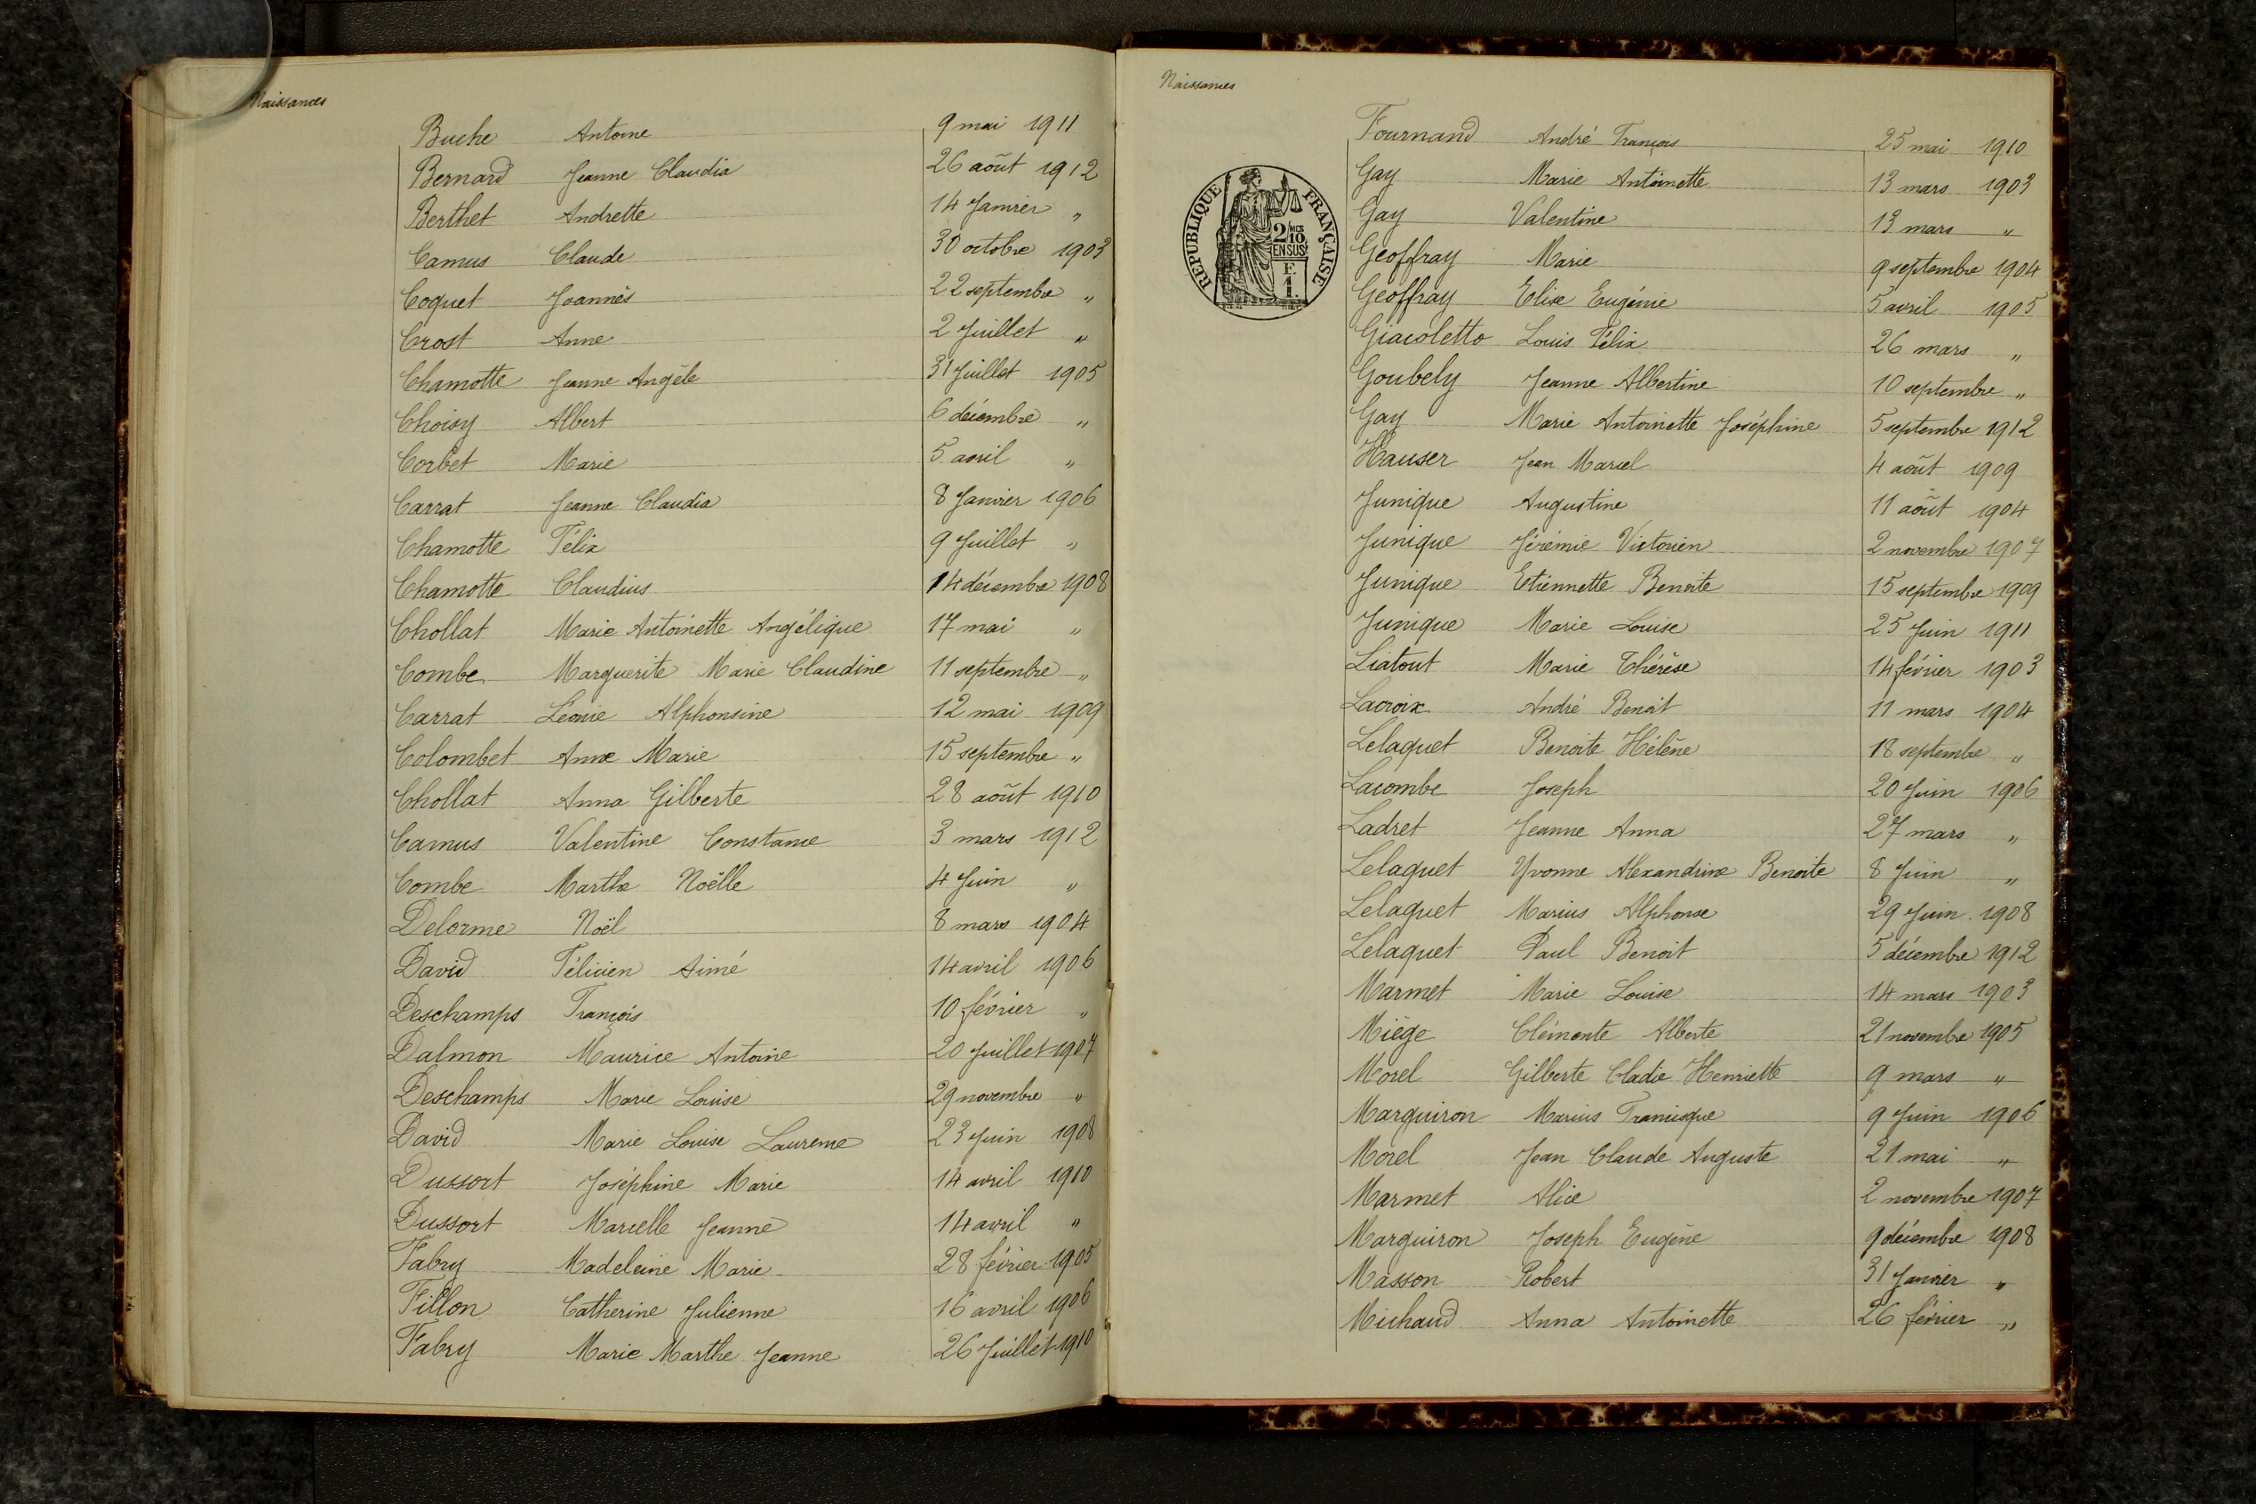 Naissances
Buche Antoine 9 mai 1911
Bernard Jeanne Claudia 26 août 1912
Berthet Andrette 14 Janvier "
Camus Claude 30 octobre 1903
Coquet Joannès 22 septembre "
Crost Anne 2 Juillet "
Chamotte Jeanne Angèle 31 Juillet 1905
Choisy Albert 6 décembre "
Corbet Marie 5 avril "
Carrat Jeanne Claudia 8 Janvier 1906
Chamotte Félix 9 Juillet "
Chamotte Claudius 14 décembre 1908
Chollat Marie Antoinette Angélique 17 mai "
Combe Marguerite Marie Claudine 11 septembre "
Carrat Léonie Alphonsine 12 mai 1909
Colombet Anne Marie 15 septembre "
Chollat Anna Gilberte 28 août 1910
Camus Valentine Constance 3 mars 1912
Combe Marthe Noëlle 4 Juin "
Delorme Noël 8 mars 1904
David Félicien Aimé 14 avril 1906
Deschamps François 10 février "
Dalmon Maurice Antoine 20 Juillet 1907
Deschamps Marie Louise 29 novembre "
David Marie Louise Laurence 23 Juin 1908
Dussort Joséphine Marie 14 avril 1910
Dussort Marcelle Jeanne 14 avril "
Fabry Madeleine Marie 28 février 1905
Fillon Catherine Julienne 16 avril 1906
Fabry Marie Marthe Jeanne 26 Juillet 1910
Naissances
RÉPUBLIQUE FRANÇAISE
2/10 MES
EN SUS
F.
1.
Fournand André François 25 mai 1910
Gay Marie Antoinette 13 mars 1903
Gay Valentine 13 mars "
Geoffray Marie 9 septembre 1904
Geoffray Elise Eugénie 5 avril 1905
Giacoletto Louis Félix 26 mars "
Goubely Jeanne Albertine 10 septembre "
Gay Marie Antoinette Joséphine 5 septembre 1912
Hauser Jean Marcel 4 août 1909
Junique Augustine 11 août 1904
Junique Jérémie Victorien 2 novembre 1907
Junique Etiennette Benoite 15 septembre 1909
Junique Marie Louise 25 Juin 1911
Liatout Marie Thérèse 14 février 1903
Lacroix André Benoit 11 mars 1904
Lelaquet Benoite Hélène 18 septembre "
Lacombe Joseph 20 Juin 1906
Ladret Jeanne Anna 27 mars "
Lelaquet Yvonne Alexandrine Benoite 8 Juin "
Lelaquet Marius Alphonse 29 Juin 1908
Lelaquet Paul Benoit 5 décembre 1912
Marmet Marie Louise 14 mars 1903
Miège Clémente Alberte 21 novembre 1905
Morel Gilberte Cladie Henriette 9 mars "
Marquiron Marius Francisque 9 Juin 1906
Morel Jean Claude Auguste 21 mai "
Marmet Alice 2 novembre 1907
Marquiron Joseph Eugène 9 décembre 1908
Masson Robert 31 Janvier "
Michaud Anna Antoinette 26 février "